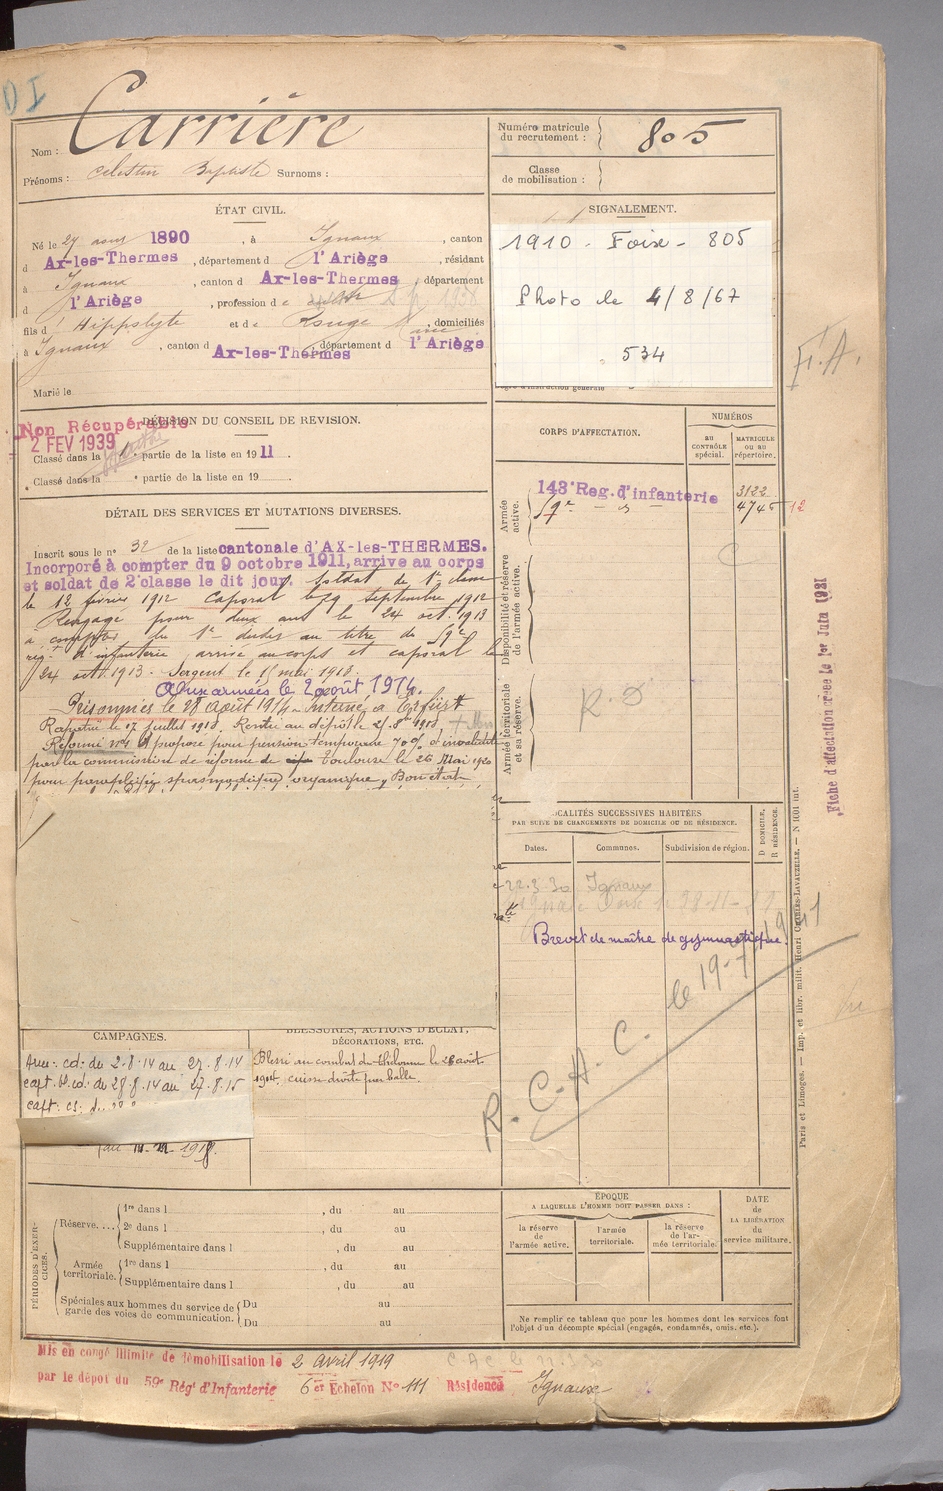 DI
Nom : Carrière
Prénoms : Celestin Baptiste Surnoms :
Numéro matricule du recrutement : 805
Classe de mobilisation :
ÉTAT CIVIL.
Né le 27 aout 1890, à Ignaux, canton
d Ax-les-Thermes, département d l'Ariège, résidant
à Ignaux, canton d Ax-les-Thermes, département
d l'Ariège, profession d e
fils d' Hippolyte et de Rouge, domiciliés
à Ignaux, canton d Ax-les-Thermes, département d l'Ariège
Marié le
SIGNALEMENT.
1910 - Foix - 805
Photo le 4/8/67
534
Degré d'instruction générale
F.A.
DÉCISION DU CONSEIL DE REVISION.
Non Récupérable
2 FEV 1939
Classé dans la 1 partie de la liste en 1911.
Classé dans la partie de la liste en 19
DÉTAIL DES SERVICES ET MUTATIONS DIVERSES.
Inscrit sous le n° 32 de la liste cantonale d'AX-les-THERMES.
Incorporé à compter du 9 octobre 1911, arrive au corps
et soldat de 2e classe le dit jour. Soldat de 1re classe
le 12 février 1912 Caporal le 29 septembre 1912
Rengagé pour deux ans le 24 oct. 1913
à compter du 1er dudit au titre du 59e
rég. d'infanterie, arrivé au corps et caporal le
24 oct. 1913. Sergent le 15 mai 1913.
Aux armées le 2 août 1914.
Prisonnier le 28 août 1914 - Interné à Erfürt
Rapatrié le 17 juillet 1918. Rentré au dépôt le 21. 8bre 1918
Réformé n°1 et proposé pour pension temporaire 70% d'invalidité
par la commission de réforme de Toulouse le 26 Mai 1920
pour paraplégie spasmodique organique, Bon état
CORPS D'AFFECTATION.
NUMÉROS
au contrôle spécial.
matricule ou au répertoire.
Armée active.
143e Reg. d'infanterie 3122
59e - d° 4745 12
Disponibilité et réserve de l'armée active.
Armée territoriale et sa réserve.
R.D
Fiche d'affectation créée le 1er Juin 1931
LOCALITÉS SUCCESSIVES HABITÉES
PAR SUITE DE CHANGEMENTS DE DOMICILE OU DE RÉSIDENCE.
Dates. Communes. Subdivision de région. D DOMICILE. R RÉSIDENCE.
22-3-30 Ignaux
Brevet de maître de gymnastique.
R. C. A. C. le 19-7-1941
CAMPAGNES.
Aux : cd : du 2.8.14 au 27.8.14
capt. bl. cd. du 28.8.14 au 27.8.15
capt : cs : d
BLESSURES, ACTIONS D'ÉCLAT, DÉCORATIONS, ETC.
Blessé au combat de Thelonne le 28 août
1914, cuisse droite par balle.
PÉRIODES D'EXERCICES.
Réserve.... 1re dans l , du au
2e dans l , du au
Supplémentaire dans l , du au
Armée territoriale. 1re dans l , du au
Supplémentaire dans l , du au
Spéciales aux hommes du service de garde des voies de communication. Du au
Du au
ÉPOQUE
A LAQUELLE L'HOMME DOIT PASSER DANS :
la réserve de l'armée active.
l'armée territoriale.
la réserve de l'armée territoriale.
DATE de LA LIBÉRATION du service militaire.
Ne remplir ce tableau que pour les hommes dont les services font
l'objet d'un décompte spécial (engagés, condamnés, omis, etc.).
Paris et Limoges. — Imp. et libr. milit. Henri CHARLES-LAVAUZELLE. — N 1001 int.
Mis en congé illimité de démobilisation le 2 avril 1919
par le dépôt du 59e Rég' d'Infanterie 6er Echelon N° 111 Résidence Ignaux